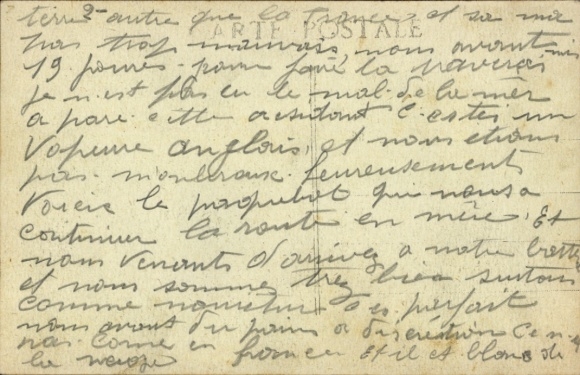 terre autre que la France et sa ma
CARTE POSTALE
pas trop mauvais nous avont mis
19 joures pour faire la traversés
je n est pas eu le mal de la mer
a pare cette acsidant c'estes un
Vapeure anglais, et nous etions
pas nombraux. heureusement
Voicie le paquebot qui nous a
continuer la route en mère. Et
nous venants d'arrivez a notre
et nous sommes trez bien surtous
comme nouriture s'es parfait
nous avont du pains a discrétion ce n
pas come en france et il et blanc de
la neige